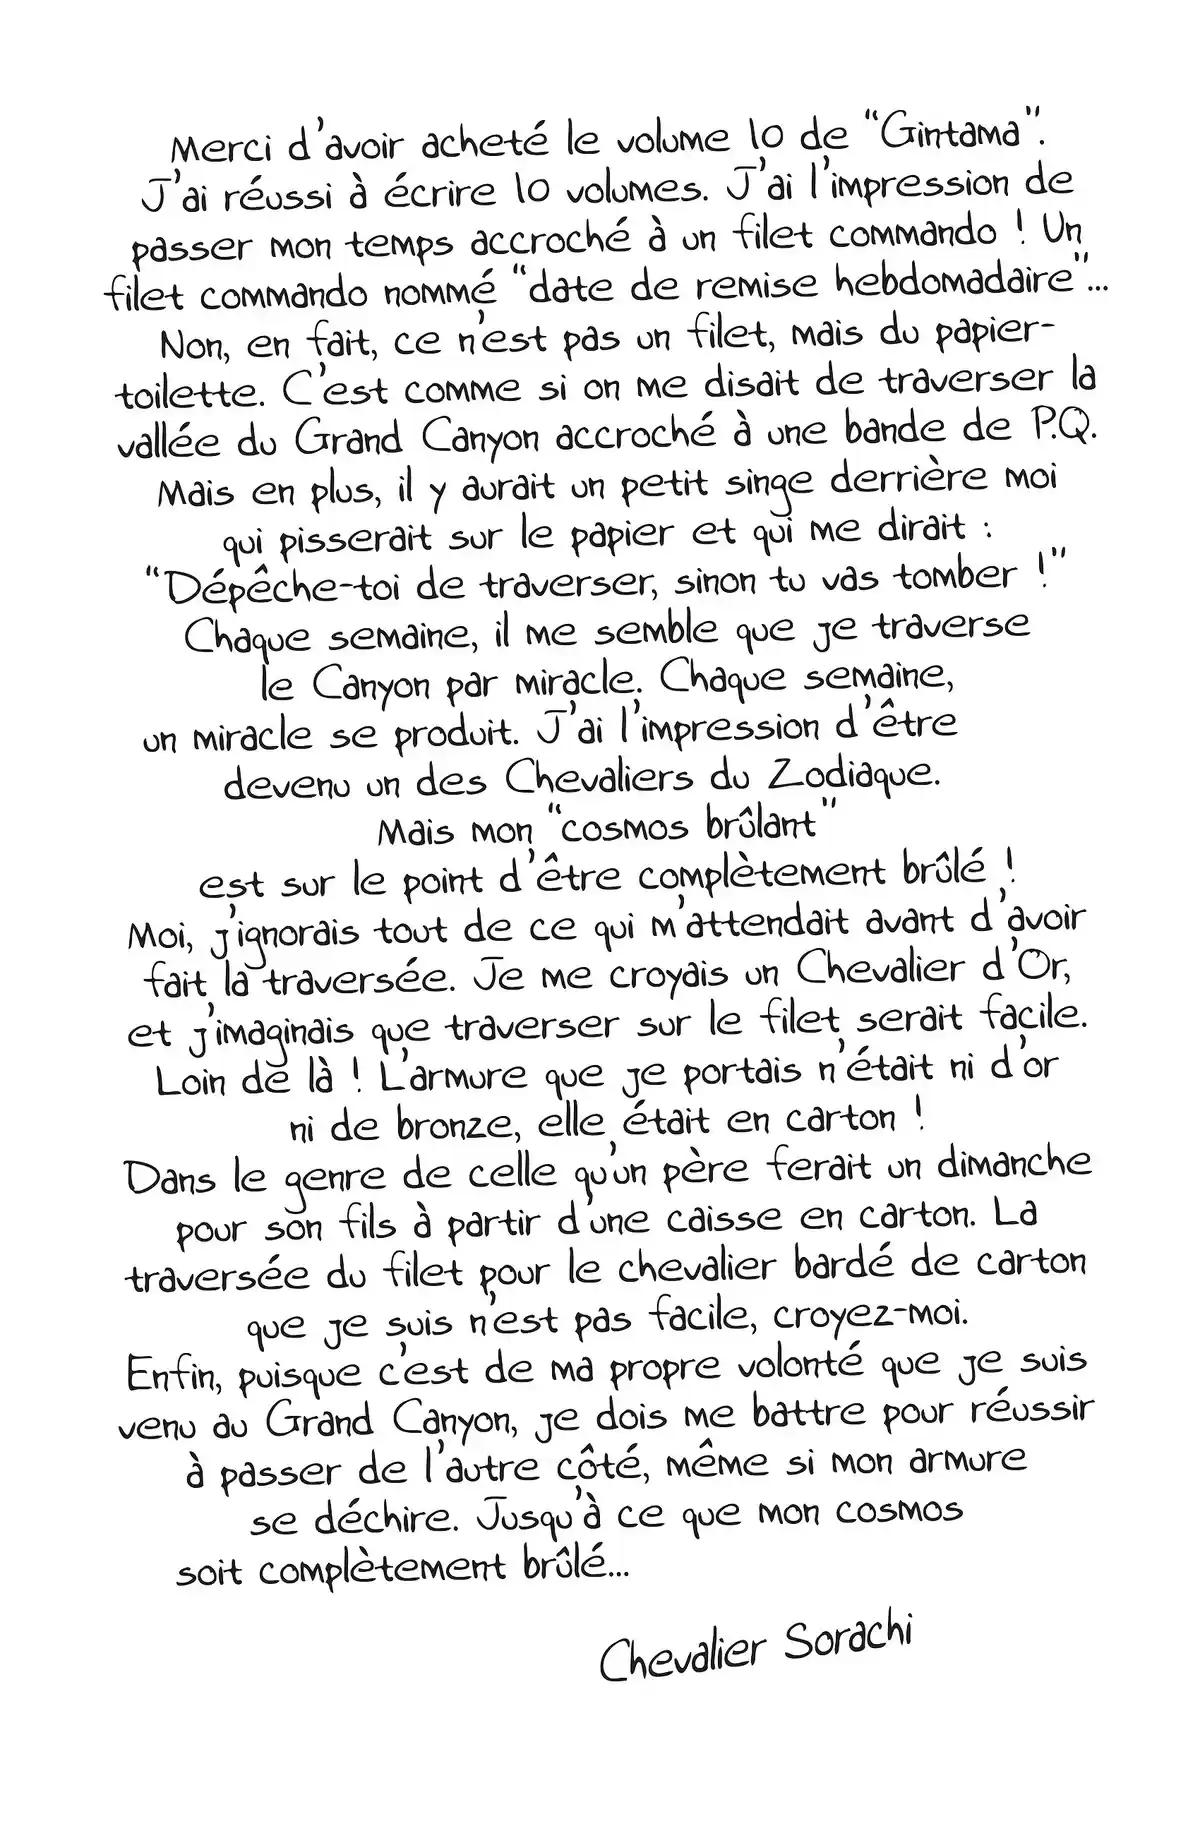 Merci d'avoir acheté le volume 10 de "Gintama".
J'ai réussi à écrire 10 volumes. J'ai l'impression de
passer mon temps accroché à un filet commando ! Un
filet commando nommé "date de remise hebdomadaire"...
Non, en fait, ce n'est pas un filet, mais du papier-
toilette. C'est comme si on me disait de traverser la
vallée du Grand Canyon accroché à une bande de P.Q.
Mais en plus, il y aurait un petit singe derrière moi
qui pisserait sur le papier et qui me dirait :
"Dépêche-toi de traverser, sinon tu vas tomber !"
Chaque semaine, il me semble que je traverse
le Canyon par miracle. Chaque semaine,
un miracle se produit. J'ai l'impression d'être
devenu un des Chevaliers du Zodiaque.
Mais mon "cosmos brûlant"
est sur le point d'être complètement brûlé !
Moi, j'ignorais tout de ce qui m'attendait avant d'avoir
fait la traversée. Je me croyais un Chevalier d'Or,
et j'imaginais que traverser sur le filet serait facile.
Loin de là ! L'armure que je portais n'était ni d'or
ni de bronze, elle était en carton !
Dans le genre de celle qu'un père ferait un dimanche
pour son fils à partir d'une caisse en carton. La
traversée du filet pour le chevalier bardé de carton
que je suis n'est pas facile, croyez-moi.
Enfin, puisque c'est de ma propre volonté que je suis
venu au Grand Canyon, je dois me battre pour réussir
à passer de l'autre côté, même si mon armure
se déchire. Jusqu'à ce que mon cosmos
soit complètement brûlé...
Chevalier Sorachi